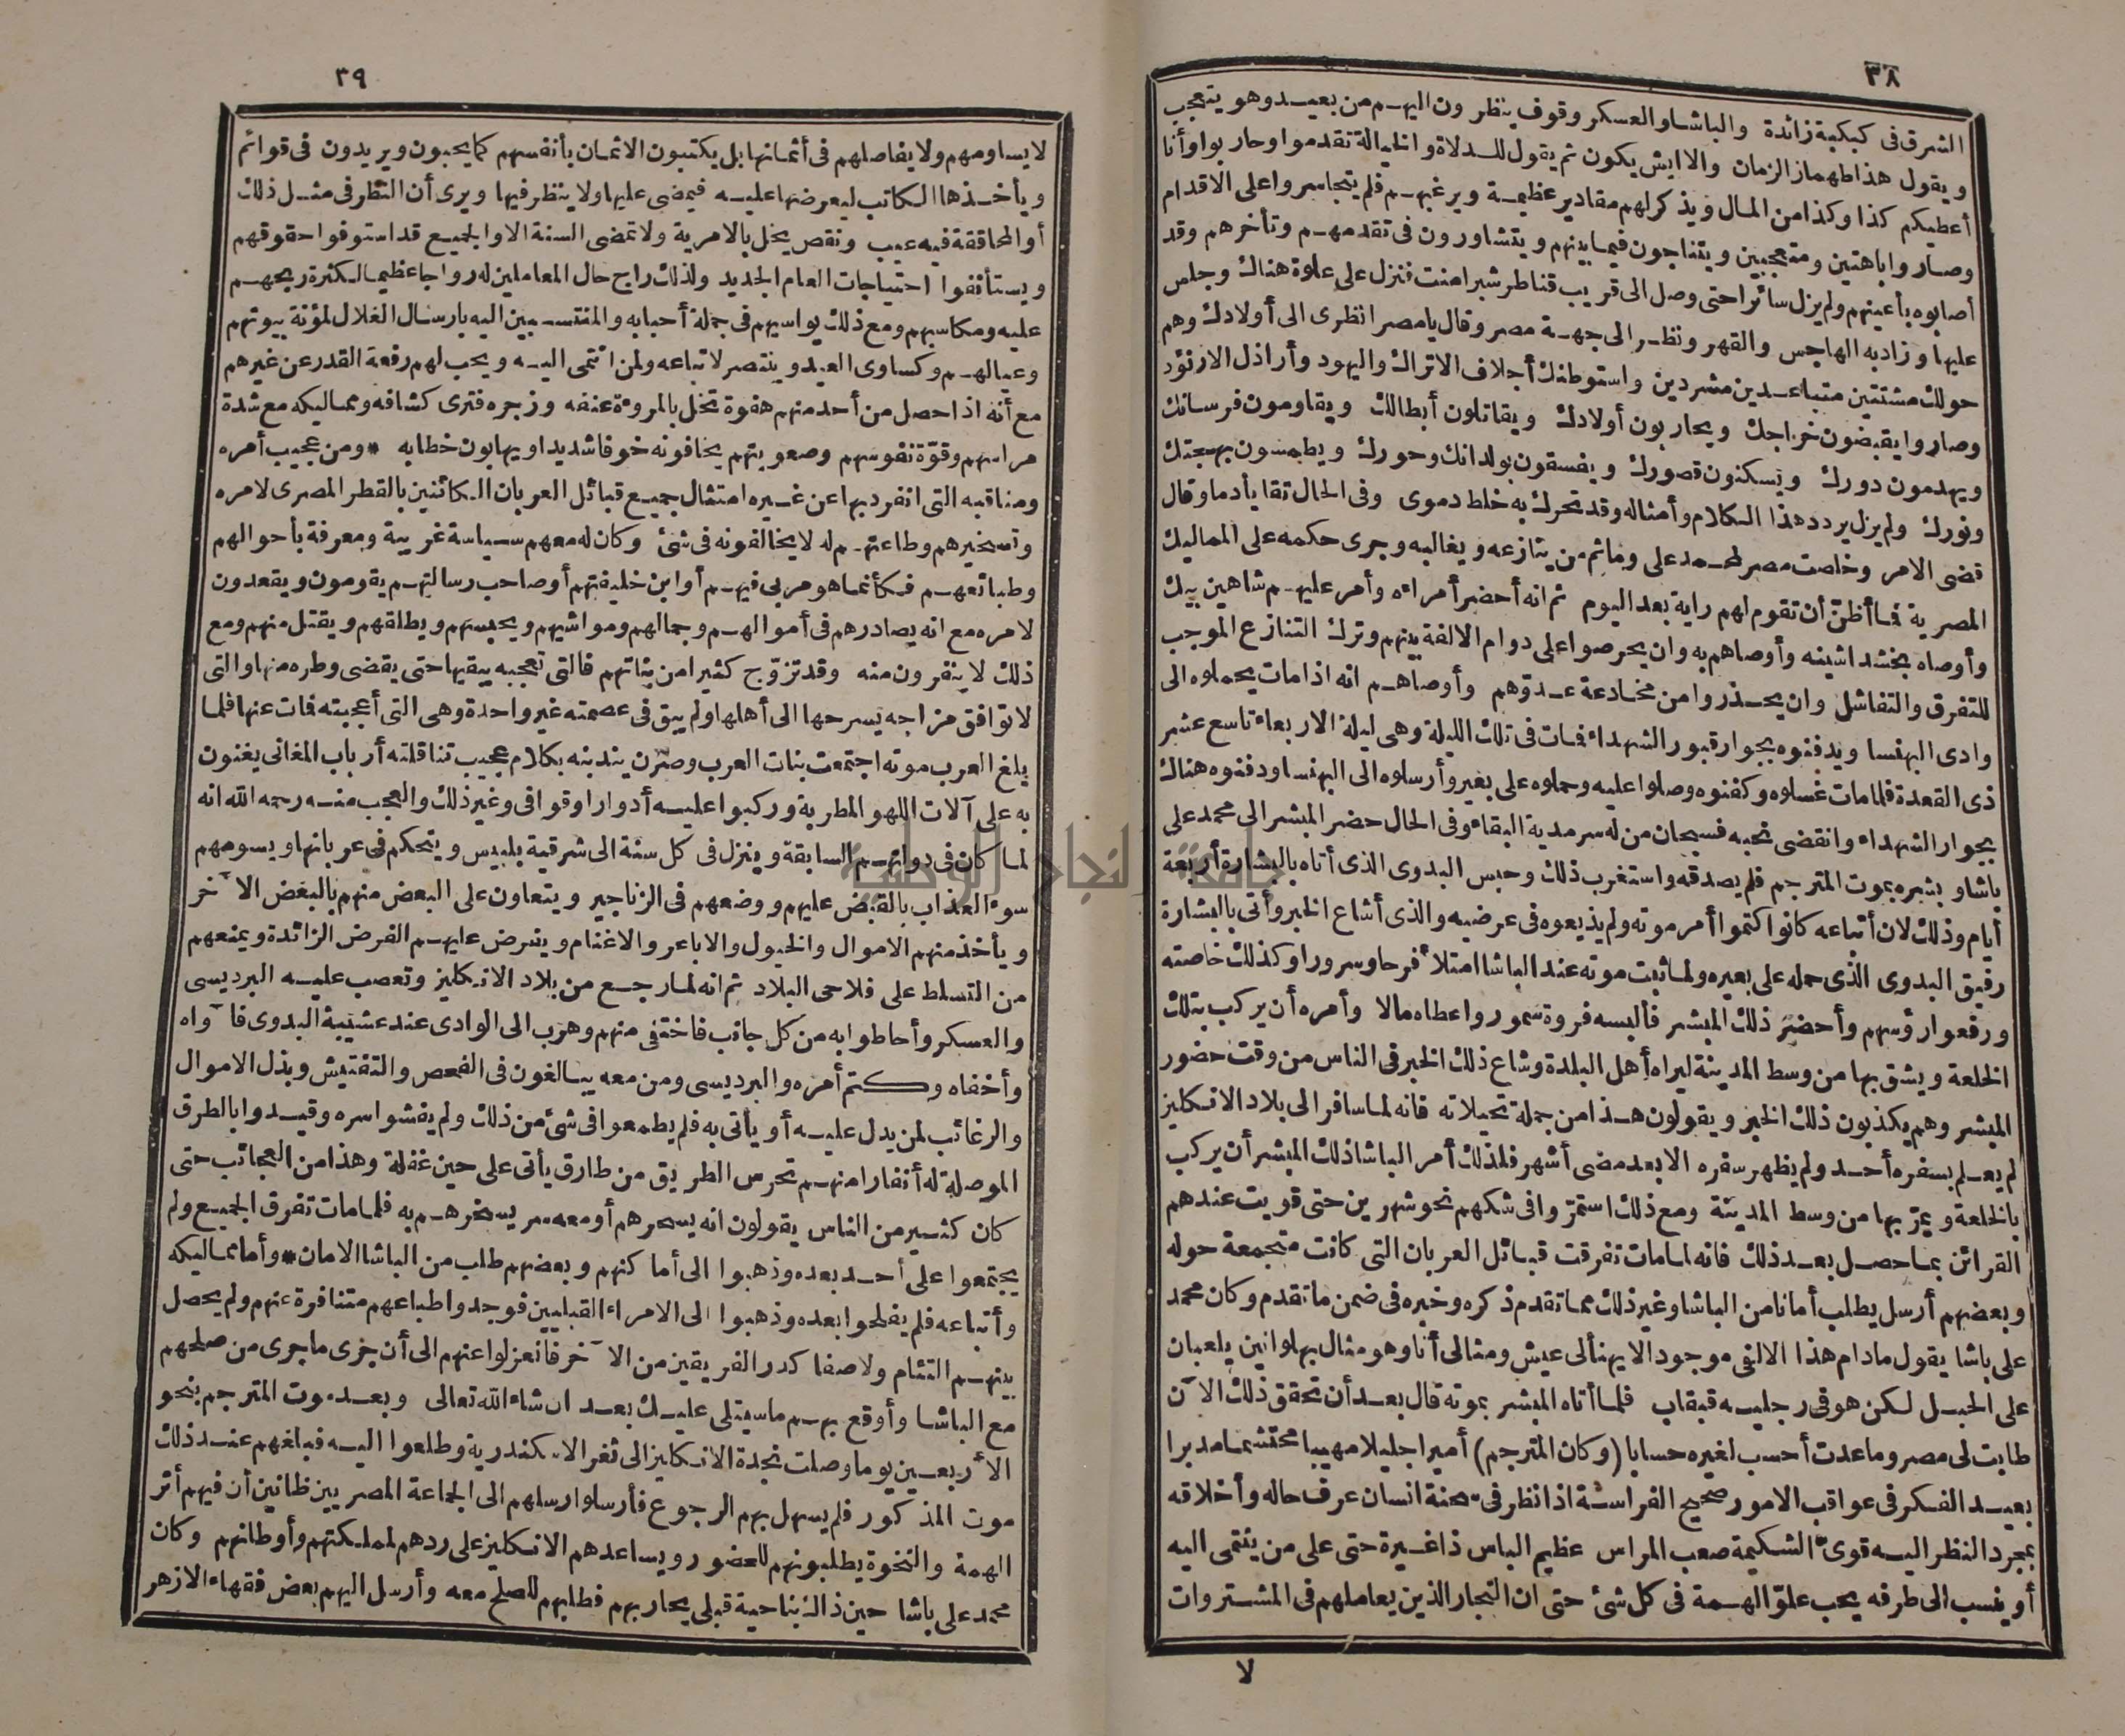 ٣٨
الشرق فى كبكبة زائدة والباشا والعسكر وقوف ينظرون اليهم من بعيد وهو يتعجب
ويقول هذا طهماز الزمان والا ايش يكون ثم يقول للدلاة والخيالة تقدموا وحاربوا وأنا
أعطيكم كذا وكذا من المال ويذكر لهم مقادير عظيمة ويرغبهم فلم يتجاسروا على الاقدام
وصاروا باهتين ومتعجبين ويتناجون فيما بينهم ويتشاورون فى تقدمهم وتأخرهم وقد
أصابوه بأعينهم ولم يزل سائرا حتى وصل الى قريب قناطر شبرامنت فنزل على علوة هناك وجلس
عليها وزاد به الهاجس والقهر ونظر الى جهة مصر وقال يا مصر انظرى الى أولادك وهم
حولك مشتتين متباعدين مشردين واستوطنك أجلاف الاتراك واليهود وأراذل الارنؤد
وصاروا يقبضون خراجك ويحاربون أولادك ويقاتلون أبطالك ويقاومون فرسانك
ويهدمون دورك ويسكنون قصورك ويفسقون بولدانك وحورك ويطمسون بهجتك
ونورك ولم يزل يردد هذا الكلام وأمثاله وقد تحرك به خلط دموى وفى الحال تقايأ دما وقال
قضى الامر وخلصت مصر لمحمد على وما ثم من ينازعه ويغالبه وجرى حكمه على المماليك
المصرية فما أظن أن تقوم لهم راية بعد اليوم ثم انه أحضر أمراءه وأمر عليهم شاهين بيك
وأوصاه بخشداشينه وأوصاهم به وان يحرصوا على دوام الالفة بينهم وترك التنازع الموجب
للتفرق والتفاشل وان يحذروا من مخادعة عدوهم وأوصاهم انه اذا مات يحملوه الى
وادى البهنسا ويدفنوه بجوار قبور الشهداء فمات فى تلك الليلة وهى ليلة الاربعاء تاسع عشر
ذى القعدة فلما مات غسلوه وكفنوه وصلوا عليه وحملوه على بعير وأرسلوه الى البهنسا ودفنوه هناك
بجوار الشهداء وانقضى نحبه فسبحان من له سرمدية البقاء وفى الحال حضر المبشر الى محمد على
باشا وبشره بموت المترجم فلم يصدقه واستغرب ذلك وحبس البدوى الذى أتاه بالبشارة أربعة
أيام وذلك لان أتباعه كانوا كتموا أمر موته ولم يذيعوه فى عرضيه والذى أشاع الخبر وأتى بالبشارة
رفيق البدوى الذى حمله على بعيره ولما ثبت موته عند الباشا امتلأ فرحا وسرورا وكذلك خاصته
ورفعوا رؤسهم وأحضر ذلك المبشر فألبسه فروة سمور واعطاه مالا وأمره أن يركب بتلك
الخلعة ويشق بها من وسط المدينة ليراه أهل البلدة وشاع ذلك الخبر فى الناس من وقت حضور
المبشر وهم يكذبون ذلك الخبر ويقولون هذا من جملة تحيلاته فانه لما سافر الى بلاد الانكليز
لم يعلم بسفره أحد ولم يظهر سفره الا بعد مضى أشهر فلذلك أمر الباشا ذلك المبشر أن يركب
بالخلعة ويمر بها من وسط المدينة ومع ذلك استمروا فى شكهم نحو شهرين حتى قويت عندهم
القرائن بما حصل بعد ذلك فانه لما مات تفرقت قبائل العربان التى كانت متجمعة حوله
وبعضهم أرسل يطلب أمانا من الباشا وغير ذلك مما تقدم ذكره وخبره فى ضمن ما تقدم وكان محمد
على باشا يقول ما دام هذا الالفى موجودا لا يهنألى عيش ومثالى أنا وهو مثال بهلوانين يلعبان
على الحبل لكن هو فى رجليه قبقاب فلما أتاه المبشر بموته قال بعد أن تحقق ذلك الآن
طابت لى مصر وما عدت أحسب لغيره حسابا (وكان المترجم) أميرا جليلا مهيبا محتشما مدبرا
بعيد الفكر فى عواقب الامور صحيح الفراسة اذا نظر فى سحنة انسان عرف حاله وأخلاقه
بمجرد النظر اليه قوى الشكيمة صعب المراس عظيم الباس ذا غيرة حتى على من ينتمى اليه
أو ينسب الى طرفه يحب علو الهمة فى كل شئ حتى ان التجار الذين يعاملهم فى المشتروات
لا
٣٩
لا يساومهم ولا يفاصلهم فى أثمانها بل يكتبون الاثمان بأنفسهم كما يحبون ويريدون فى قوائم
ويأخذها الكاتب ليعرضها عليه فيمضى عليها ولا ينظر فيها ويرى أن النظر فى مثل ذلك
أو المحاققة فيه عيب ونقص يخل بالامرية ولا تمضى السنة الا والجميع قد استوفوا حقوقهم
ويستأنفوا احتياجات العام الجديد ولذلك راج حال المعاملين له رواجا عظيما لكثرة ربحهم
عليه ومكاسبهم ومع ذلك يواسيهم فى جملة أحبابه والمنتسبين اليه بارسال الغلال لمؤنة بيوتهم
وعيالهم وكساوى العيد وينتصر لاتباعه ولمن انتمى اليه ويحب لهم رفعة القدر عن غيرهم
مع أنه اذا حصل من أحد منهم هفوة تخل بالمروءة عنفه وزجره فترى كشافه ومماليكه مع شدة
مراسهم وقوة نفوسهم وصعوبتهم يخافونه خوفا شديدا ويهابون خطابه * ومن عجيب أمره
ومناقبه التى انفرد بها عن غيره امتثال جميع قبائل العربان الكائنين بالقطر المصرى لامره
وتسخيرهم وطاعتهم له لا يخالفونه فى شئ وكان له معهم سياسة غريبة ومعرفة بأحوالهم
وطبائعهم فكأنما هو مربى فيهم أو ابن خليفتهم أو صاحب رسالتهم يقومون ويقعدون
لامره مع انه يصادرهم فى أموالهم وجمالهم ومواشيهم ويحبسهم ويطلقهم ويقتل منهم ومع
ذلك لا ينفرون منه وقد تزوج كثيرا من بناتهم فالتى تعجبه يبقيها حتى يقضى وطره منها والتى
لا توافق مزاجه يسرحها الى أهلها ولم يبق فى عصمته غير واحدة وهى التى أعجبته فمات عنها فلما
بلغ العرب موته اجتمعت بنات العرب وصرن يندبنه بكلام عجيب تناقلته أرباب المغانى يغنون
به على آلات اللهو المطربة وركبوا عليه أدوارا وقوافى وغير ذلك والعجب منه رحمه الله انه
لما كان فى دولتهم السابقة وينزل فى كل سنة الى شرقية بلبيس ويتحكم فى عربانها ويسومهم
سوء العذاب بالقبض عليهم ووضعهم فى الزناجير ويتعاون على البعض منهم بالبعض الآخر
ويأخذ منهم الاموال والخيول والاباعر والاغنام ويفرض عليهم الفرض الزائدة ويمنعهم
من التسلط على فلاحى البلاد ثم انه لما رجع من بلاد الانكليز وتعصب عليه البرديسى
والعسكر وأحاطوا به من كل جانب فاختفى منهم وهرب الى الوادى عند عشيبة البدوى فآواه
وأخفاه وكتم أمره والبرديسى ومن معه يبالغون فى الفحص والتفتيش وبذل الاموال
والرغائب لمن يدل عليه أو يأتى به فلم يطمعوا فى شئ من ذلك ولم يفشوا سره وقيدوا بالطرق
الموصلة له أنفارا منهم تحرس الطريق من طارق يأتى على حين غفلة وهذا من العجائب حتى
كان كثير من الناس يقولون انه يسحرهم أو معه سر يسخرهم به فلما مات تفرق الجميع ولم
يجتمعوا على أحد بعده وذهبوا الى أماكنهم وبعضهم طلب من الباشا الامان * وأما مماليكه
وأتباعه فلم يفلحوا بعده وذهبوا الى الامراء القبليين فوجدوا طباعهم متنافرة عنهم ولم يحصل
بينهم التئام ولا صفا كدر الفريقين من الآخر فانعزلوا عنهم الى أن جرى ما جرى من صلحهم
مع الباشا وأوقع بهم ما سيتلى عليك بعد ان شاء الله تعالى وبعد موت المترجم بنحو
الأربعين يوما وصلت نجدة الانكليز الى ثغر الاسكندرية وطلعوا اليه فبلغهم عند ذلك
موت المذكور فلم يسهل بهم الرجوع فأرسلوا رسلهم الى الجماعة المصريين ظانين أن فيهم أثر
الهمة والنخوة يطلبونهم للحضور ويساعدهم الانكليز على ردهم لمملكتهم وأوطانهم وكان
محمد على باشا حين ذاك بناحية قبلى يحاربهم فطلبهم للصلح معه وأرسل اليهم بعض فقهاء الازهر
جامعة النجاح الوطنية